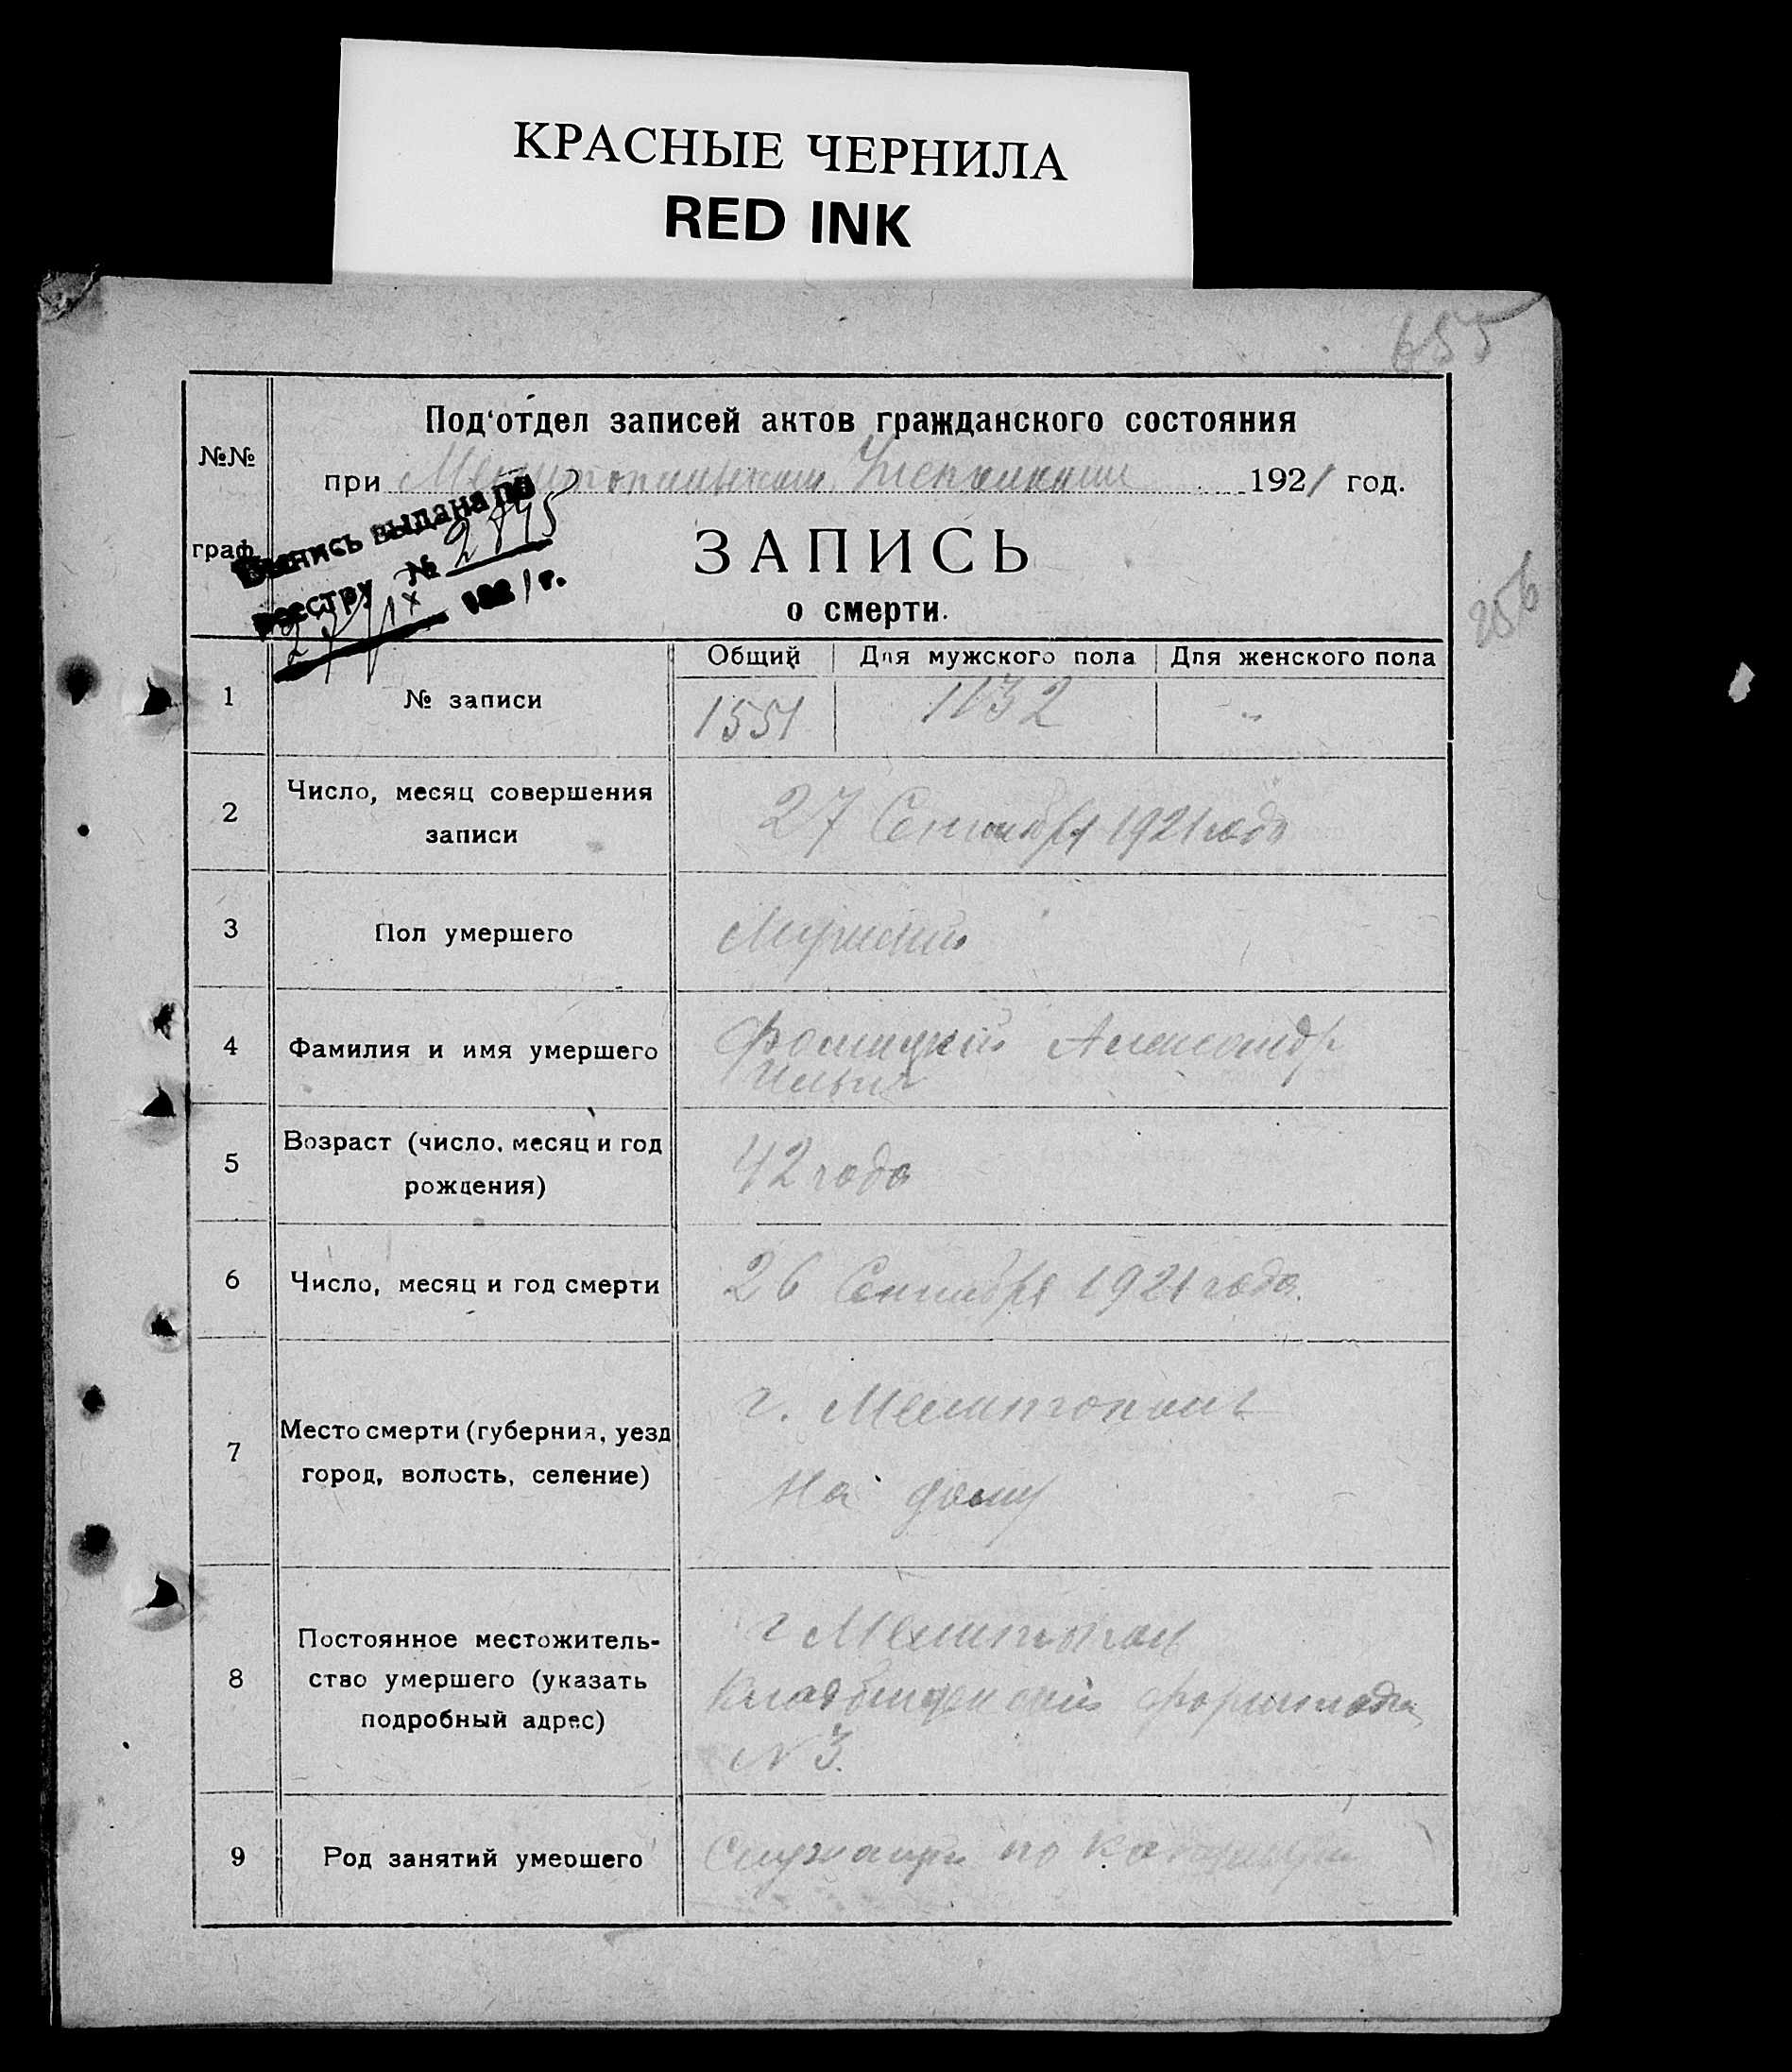 КРАСНЫЕ ЧЕРНИЛА
RED INK
655
Под‘отдел записей актов гражданского состояния
№№
при Мелитопольском 1921 год.
граф.
Выпись выдана по
реестру № 2845
27/IX 1921 г.
ЗАПИСЬ
о смерти.
256
Общий Для мужского пола Для женского пола
1 № записи 1551 1132 "
2 Число, месяц совершения
записи
27 Сентября 1921 года
3 Пол умершего Мужский
4 Фамилия и имя умершего Фомицкий Александр
Ильич
5 Возраст (число, месяц и год
рождения)
42 года
6 Число, месяц и год смерти 26 Сентября 1921 года.
7 Место смерти (губерния, уезд
город, волость, селение)
г. Мелитополь
На дому
8 Постоянное местожитель-
ство умершего (указать
подробный адрес)
г Мелитополь
Кладбищенский
N 3.
9 Род занятий умершего Служащий по